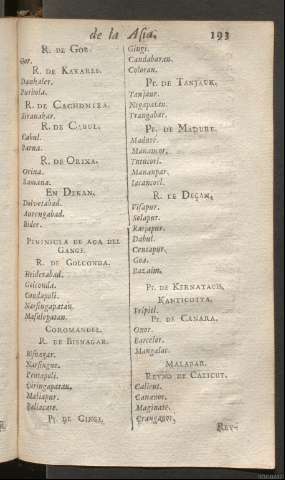 de la Asia.
193
R. DE GOR.
Gor.
R. DE KAKARES.
Dankaler.
Purhola.
R. DE CACHEMIRA.
Siranakar.
R. DE CABUL.
Cabul.
Parna.
R. DE ORIXA.
Orixa.
Ramana.
EN DEKAN.
Doltetabad.
Aurengabad.
Bider.
PENINSULA DE ACA DEL
GANGE.
R. DE GOLCONDA.
Heiderabad.
Golconda.
Condapoli.
Narsingapatan.
Masulopatan.
COROMANDEL.
R. DE BISNAGAR.
Bisnagar.
Narsingue.
Pentapoli.
Siringapatan.
Maliapur.
Paliacate.
Pr. DE GINGI.
Gingi.
Candabaran.
Coloran.
Pr. DE TANJAUR.
Tanjaur.
Negapatan.
Trangabar.
Pr. DE MADURE.
Maduré.
Manancor.
Tutucori.
Manapar.
Tacancori.
R. DE DECAN.
Visapur.
Solapur.
Rarapur.
Dabul.
Centapur.
Goa.
Bazaim.
Pr. DE KERNATACH,
KANTICOTTA.
Tripiti.
Pr. DE CANARA.
Onor.
Barcelor.
Mangalor.
MALABAR.
REYNO DE CALICUT.
Calicut.
Cananor.
Maginate.
Cranganor.
REY-